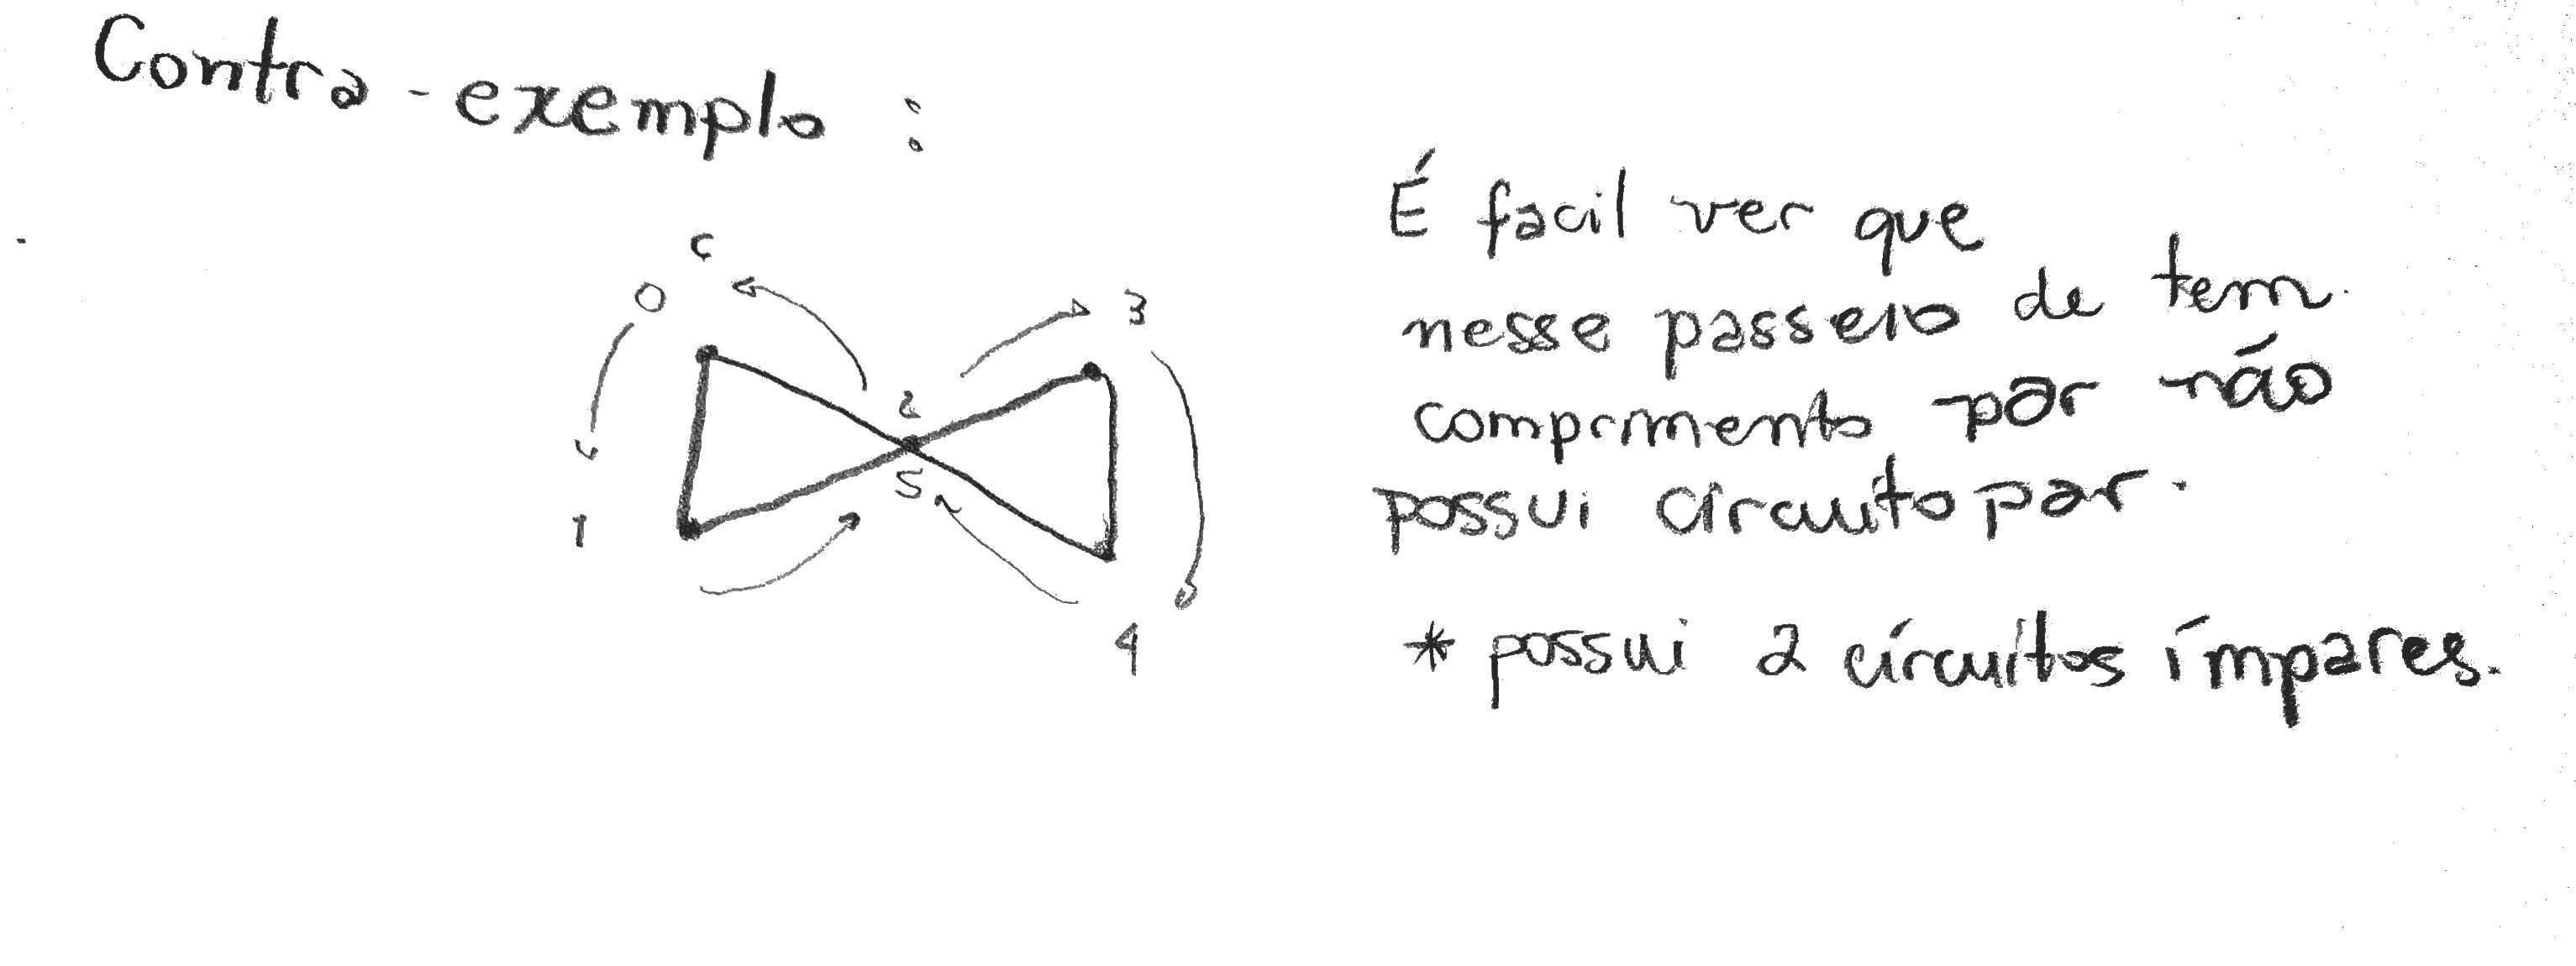 Contra-exemplo :
É facil ver que
nesse passeio de tem
comprimento par não
possui círcuito par.
* possui 2 círcuítos ímpares.
0
3
2
5
1
4